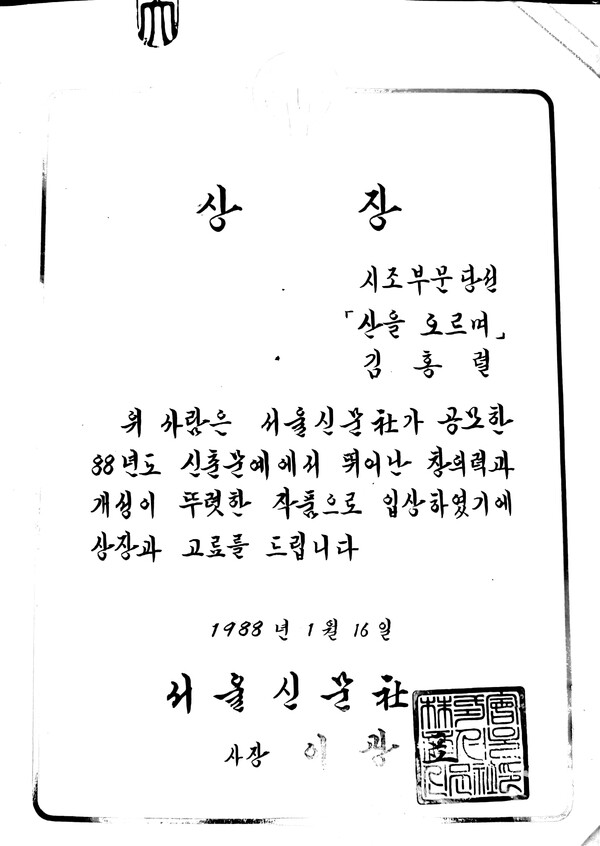 상 장
시조부문 당선
「산을 오르며」
김 홍 렬
위 사람은 서울신문社가 공모한
88년도 신춘문예에서 뛰어난 창의력과
개성이 뚜렷한 작품으로 입상하였기에
상장과 고료를 드립니다
1988년 1월 16일
서울신문社
사장 이 광